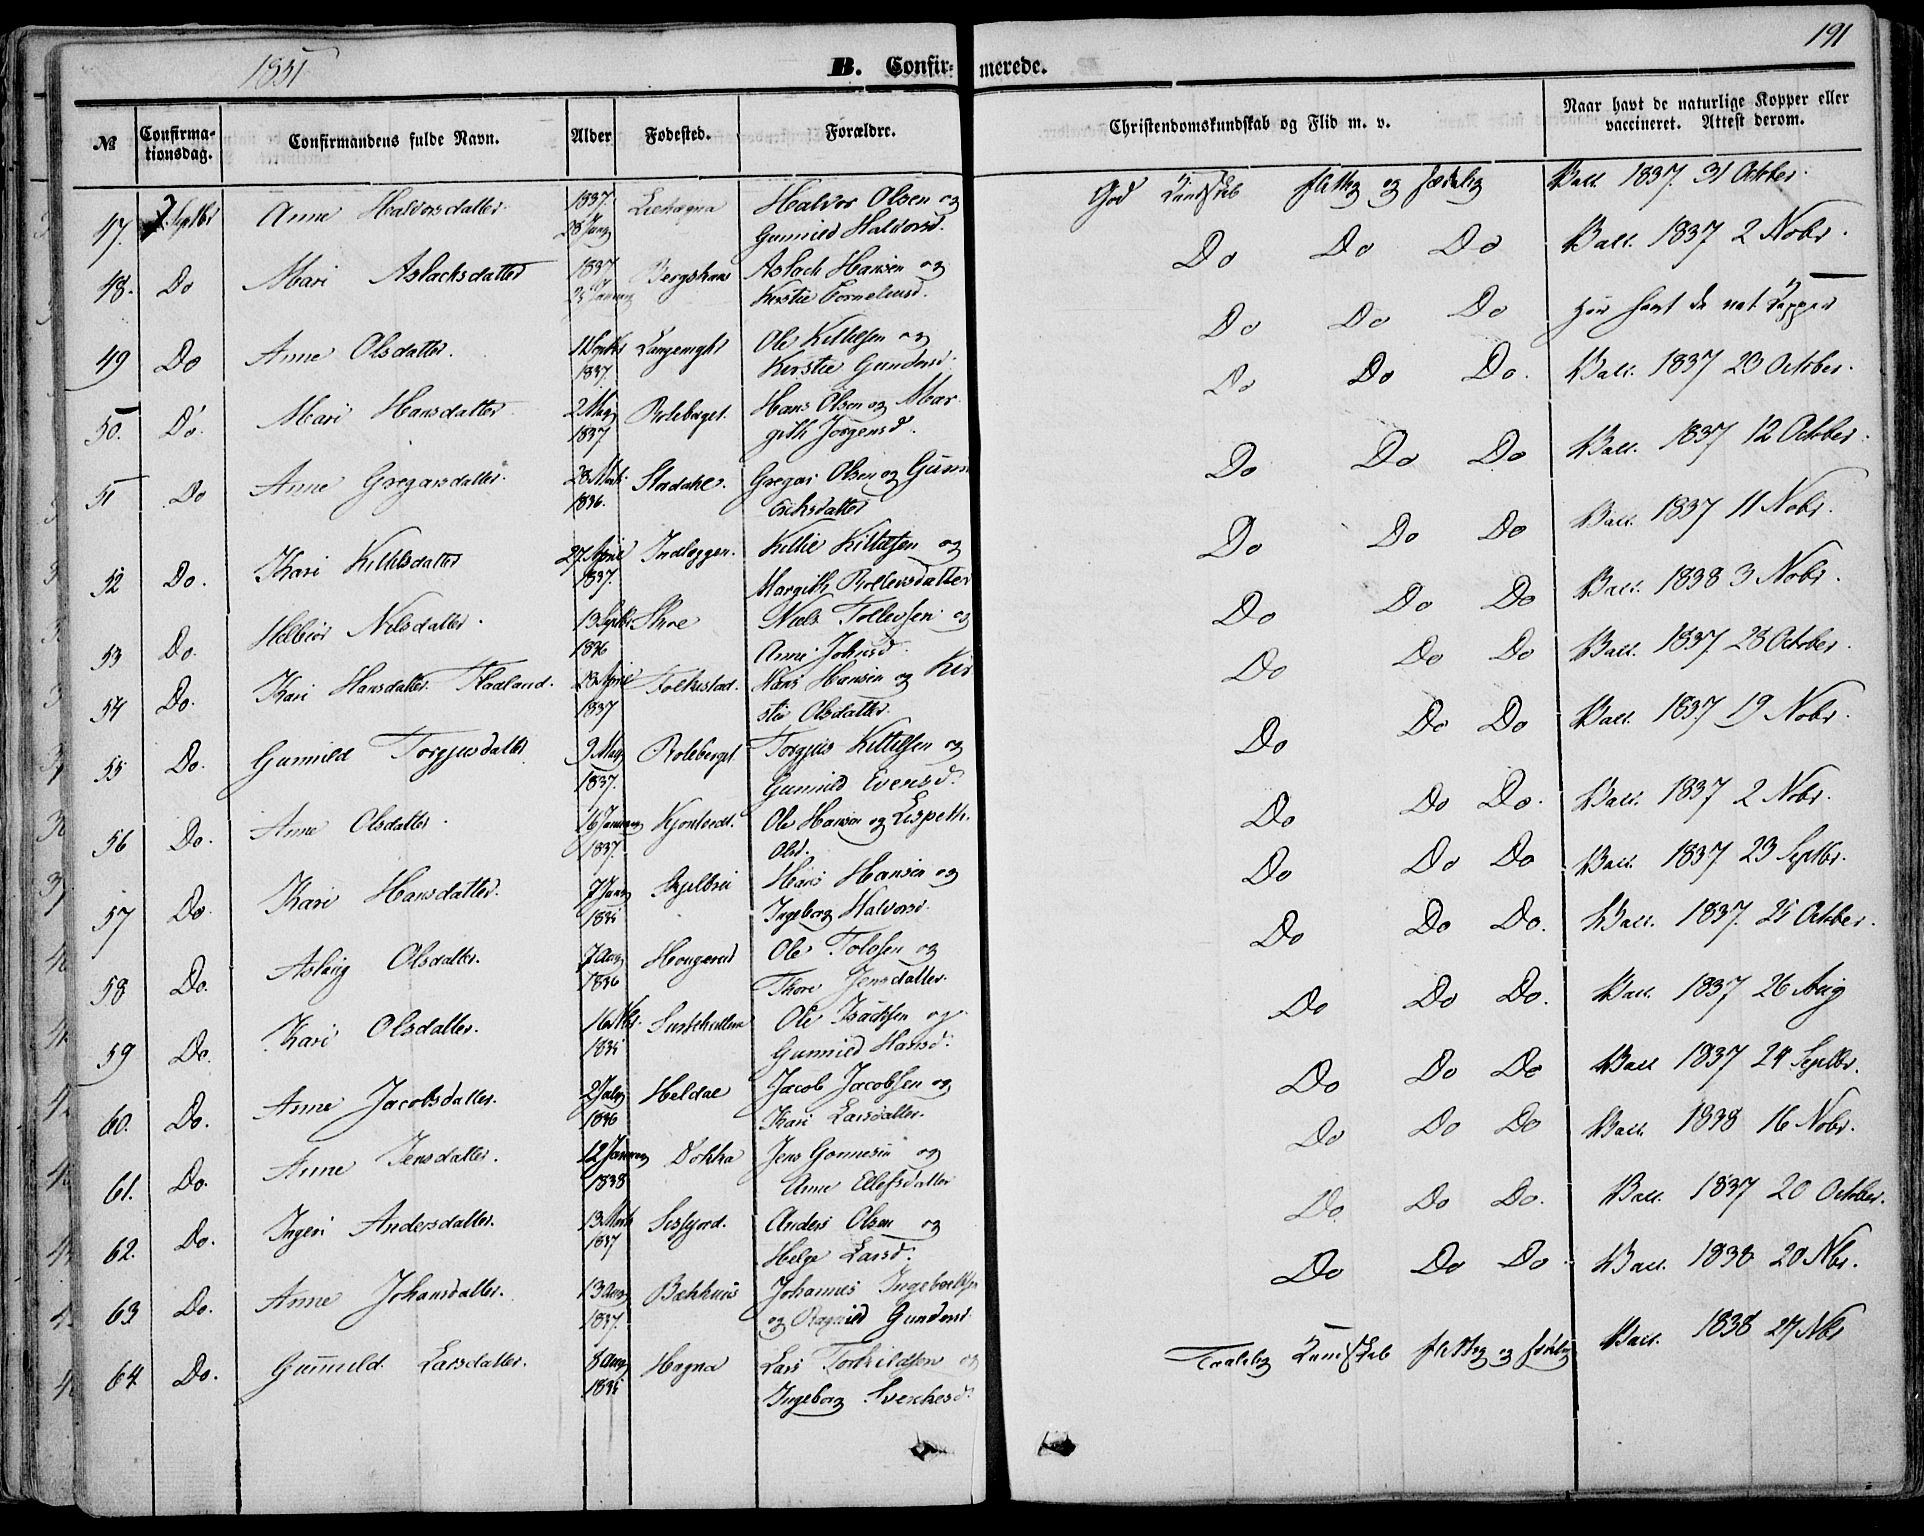 1851
191
B. Confir- merede.
№
Confirma-
tionsdag.
Confirmandens fulde Navn.
Alder
Fødested.
Forældre.
Christendomskundskab og Flid m. v.
Naar havt de naturlige Kopper eller
vaccineret. Attest derom.
47. 7 Septbr Anne Halvorsdatter 1837. 28 Halvor Olsen og God Kundskab flittig og sædelig Vacc. 1837. 31 October.
Gunnild Halvorsd.
48. Do Mari Aslachsdatter 1837 Aslach Hansen og Do Do Do Vacc. 1837 2 Nobr.
Kirstie Corneliusd.
49 Do Anne Olsdatter. Ole Kittilsen og Do Do Do har havt de nat. Kopper
1837 Kirstie Gundersd.
50. Do. Mari Hansdatter 2 Roleberget. Hans Olsen og Mar- Do Do Do. Vacc. 1837 23 October.
1837 gith Jørgensd.
51 Do Anne Gregarsdatter. 28 Stordahl. Gregar Olsen og Gunn Do Do Do Vacc. 1837 12 October.
1836. Eriksdatter
52 Do. Kari Kittilsdatter 27 April Indleggen. Kittil Kittilsen og Do Do Do Vacc. 1837 11 Nobr.
1837. Margith Rollevsdatter
53 Do. Helbiør Nilsdatter. 13 Septbr Skoe Niels Tollevsen og Do Do Do Vacc. 1838 3 Nobr.
1836 Anne Johnsd.
54 Do. Kari Hansdatter Fladland. 23 April Folkestad. Hans Hansen og Kir- Do Do Do Vacc. 1837 28 October.
1837 stie Olsdatter.
55 Do. Gunnild Torgjusdatter 9 Roleberget Torgjus Kittilsen og Do Do Do Vacc. 1837 19 Nobr.
1837. Gunnild Evensd.
56 Do. Anne Olsdatter. 16 Januar Ole Hansen og Lispeth Do Do Do. Vacc. 1837 2 Nobr.
1837. Olsd.
57 Do. Kari Hansdatter. 7 Hans Hansen og Do Do Do Vacc. 1837 23 Septbr.
Ingeborg Halvorsd.
58 Do. Aslaug Olsdatter. 7 Aug Ole Tolofsen og Do Do Do. Vacc. 1837. 25 October.
1836 Thore Jensdatter.
59 Do. Kari Olsdatter. 16 Ole Isachsen og Do Do Do. Vacc. 1837 26 Aug
Gunnild Hansd.
60. Do. Anne Jacobsdatter. 2 July Heldal Jacob Jacobsen og Do Do Do Vacc 1837 24 Septbr.
1836 Kari Larsdatter.
61. Do. Anne Jensdatter. 12 Januar Dokka Jens Gonnesen og Do Do Do Vacc. 1838 16 Nobr.
1838 Anne Ellefsdatter
62. Do. Ingeri Andersdatter. 13 Anders Olsen og Do Do Do. Vacc. 1837 20 October.
1837 Helge Larsd.
63 Do. Anne Johansdatter. 13 Aug Bækhuus Johannes Ingebretsen Do Do Do Vacc. 1838 20 Nbr.
1837. og Ragnild Gundersd.
64 Do. Gunnild Larsdatter. 8 Aug Hogna Lars Torkildsen og Taalelig Kundskab flittig og sædelig Vacc. 1838 27 Nbr
Ingeborg Svenkesd.